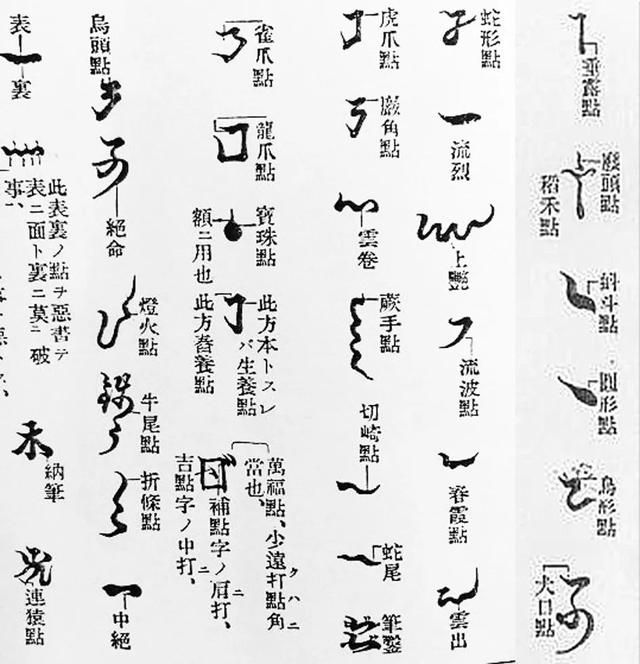 垂露點
蕨頭點
稻禾點
蚪斗點
圓形點
鳥形點
犬口點
蛇形點
流烈
上艷
流波點
春霞點
雲出
虎爪點
嚴角點
雲卷
蕨手點
切崎點
蛇尾
雀爪點
龍爪點
寶珠點
額ニ用也
此方本トスレ
バ生養點
此方舊養點
萬福點、少遠打點角
當也、
補點字ノ
打、
吉點字ノ中打、
烏頭點
絕命
燈火點
牛尾點
折條點
中絕
表
裏
此表裏ノ點ヲ惡書テ
表ニ面ト裏ニ莫ニ破
事、
納筆
連猿點